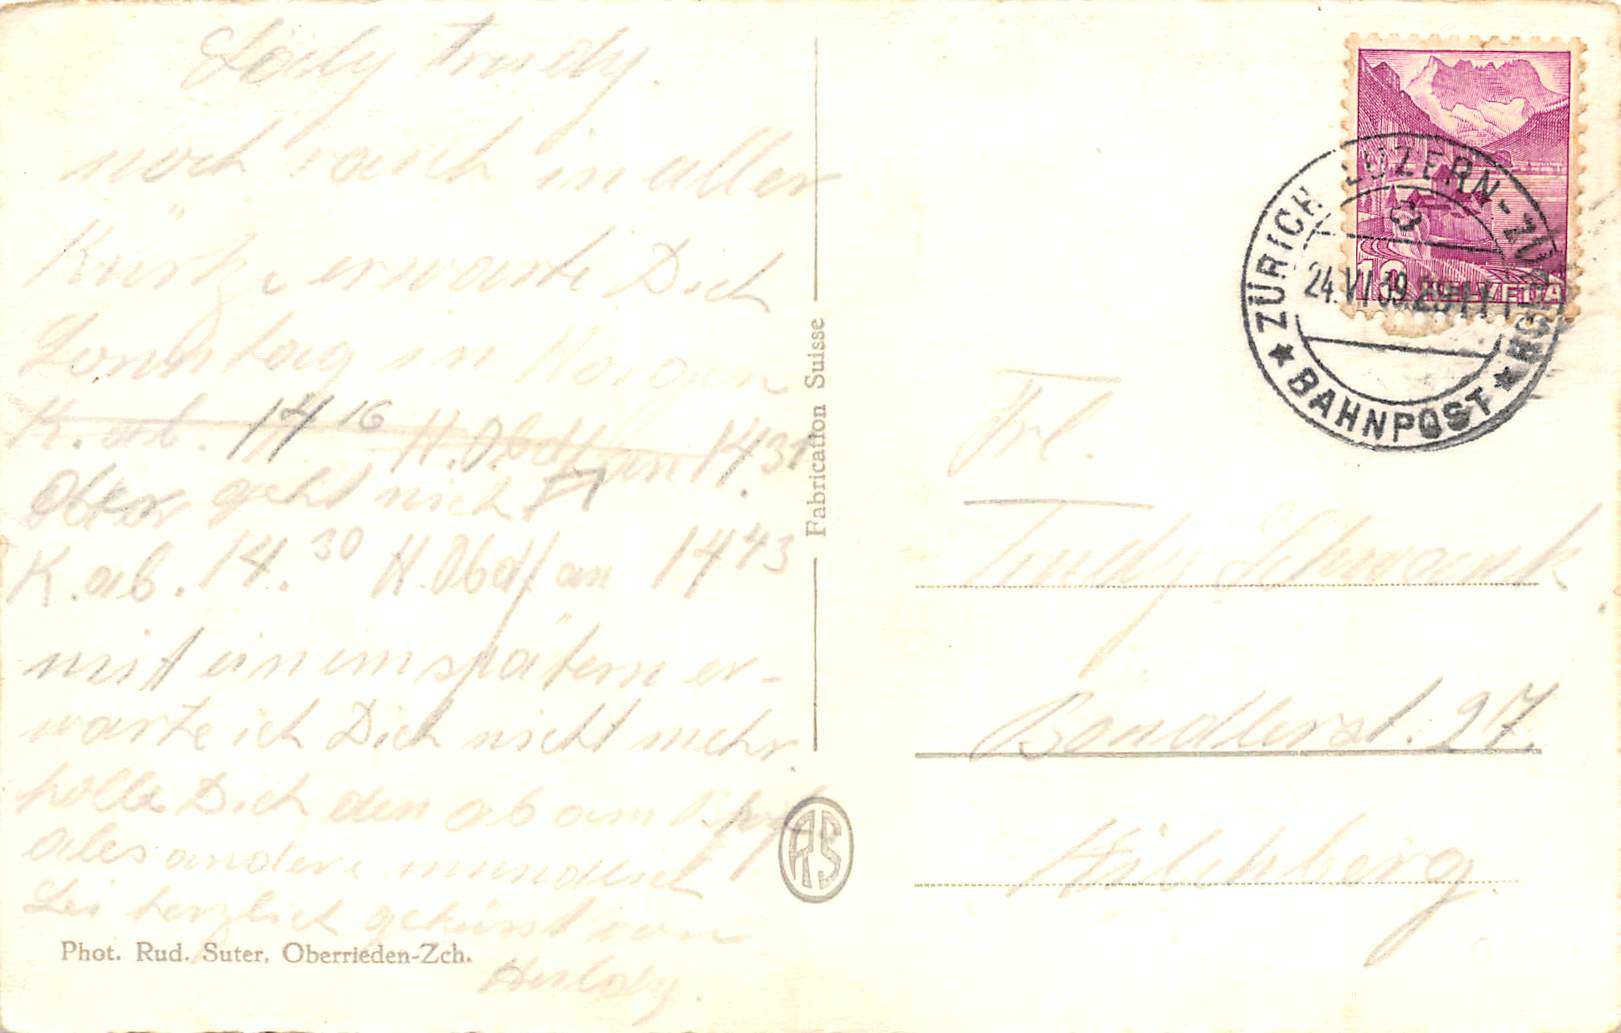 Trudy.
noch rasch in aller
Kürze, erwarte Dich
Sonntag in Horgen
K. ab. 14 16 H. Obdf an 14 31
Ober geht nicht
K. ab. 14. 30 H. Obdf an 14 43
mit einem spätern er-
warte ich Dich nicht mehr.
holle Dich den ab am
ales andere mündlich
Sei herzlich geküsst von
Phot. Rud. Suter, Oberrieden-Zch.
Fabrication Suisse
RS
10 HELVETIA
ZÜRICH-LUZERN-ZÜRICH
24.VI.39
★ BAHNPOST ★
Frl.
Trudy Schwank
Böndlerst. 27.
Kilchberg